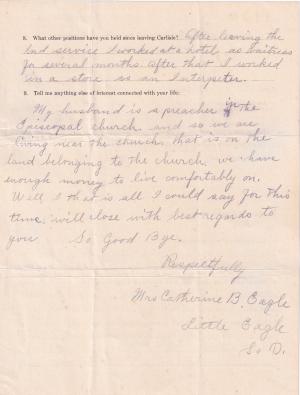 8. What other positions have you held since leaving Carlisle? After leaving the
Ind service I worked at a hotel as waitress
for several months. After that I worked
in a store as an Interpeter.
9. Tell me anything else of interest connected with your life:
My husband is a preacher in the
Episcopal church and so we are
living near the church, that is on the
land belonging to the church. we have
enough money to live comfortably on.
Well I that is all I could say for this
time, will close with best regards to
you So Good Bye.
Respectfully
Mrs Catherine B. Eagle
Little Eagle
So D.